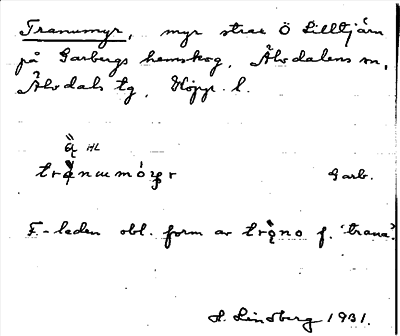 Tranumyr, myr strax Ö Lilltjärn
på Garbergs hemskog, Älvdalens sn,
Älvdals tg, Kopp. l.
HL
Garb.
F-leden obl. form av tråno f. 'trana'.
H. Lindberg 1931.